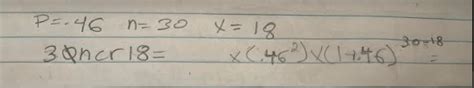 P=.46 n=30 X=18
30ncr18= x(.46²)x(1-.46)³⁰⁻¹⁸ =